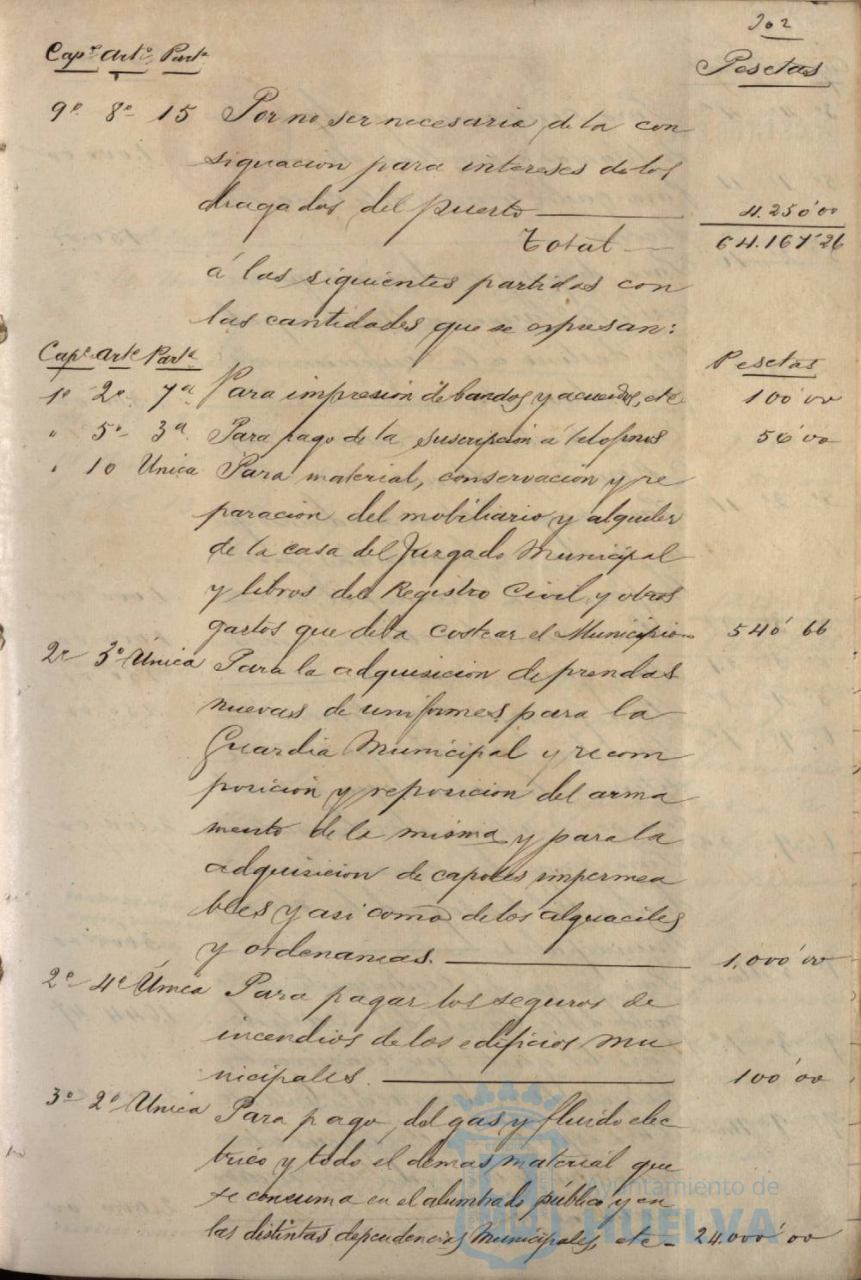 202
Cap.º Art.º Part.ª Pesetas
9º 8º 15 Por no ser necesaria, de la con
signacion para intereses de los
dragados del puerto 4.250'00
Total 64.167'26
á las siguientes partidas con
las cantidades que se expresan:
Cap.º Art.º Part.ª Pesetas
1º 2º 7ª Para impresión de bandos y acuerdos, etc 100'00
" 5º 3ª Para pago de la suscripción á teléfonos 56'00
" 10 Unica Para material, conservación y re
paración del mobiliario y alquiler
de la casa del Juzgado Municipal
y libros del Registro Civil y otros
gastos que deba costear el Municipio 540'66
2º 3º Única Para la adquisicion de prendas
nuevas de uniformes para la
Guardia Municipal y recom
posición y reposicion del arma
mento de la misma y para la
adquisicion de capotes impermea
bles y asi como de los alguaciles
y ordenanzas. 1.000'00
2º 4º Única Para pagar los seguros de
incendios de los edificios mu
nicipales. 100'00
3º 2º Unica Para pago, del gas y fluido elec
trico y todo el demas material que
se consuma en el alumbrado público y en
las distintas dependencias Municipales, etc 24.000'00
Ayuntamiento de
HUELVA